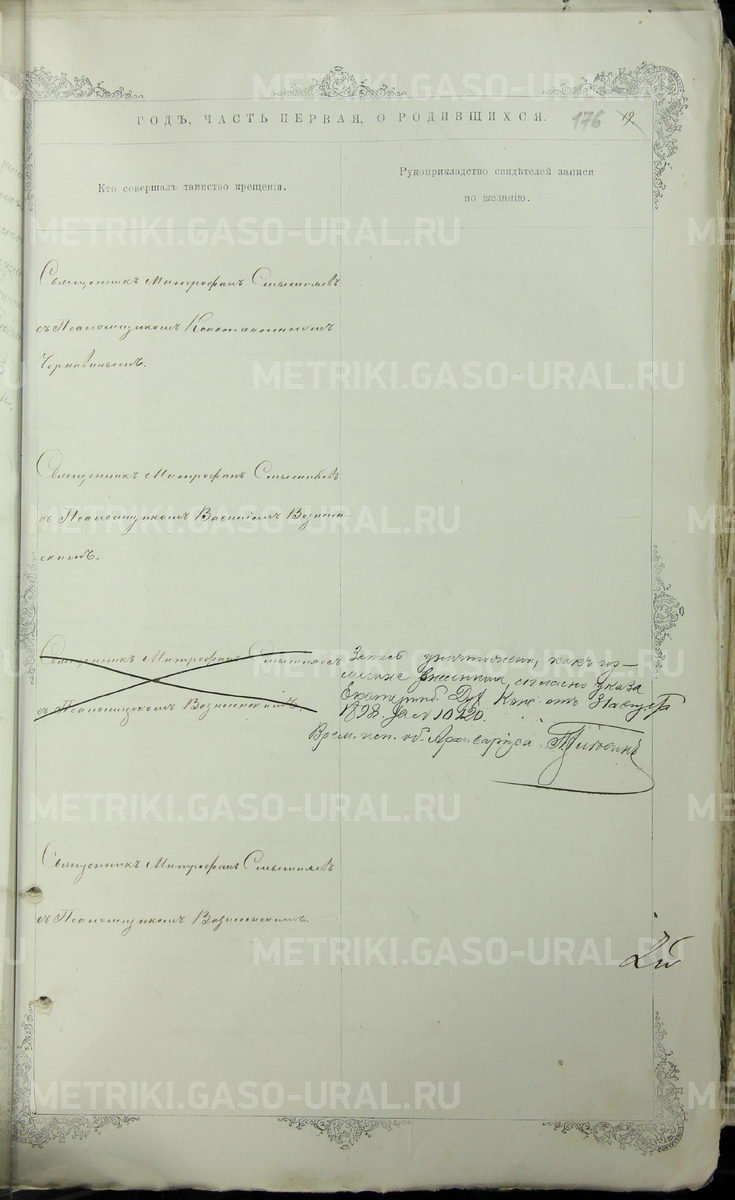 METRIKI.GASO-URAL.RU
ГОДЪ, ЧАСТЬ ПЕРВАЯ, О РОДИВШИХСЯ. 176
Кто совершалъ таинство крещенія.
Рукоприкладство свидѣтелей записи
по желанію.
METRIKI.GASO-URAL.RU METRIKI.GASO-URAL.RU
Священникъ Митрофанъ Смышляевъ
съ Псаломщикомъ Константиномъ
Чернавинымъ.
METRIKI.GASO-URAL.RU
Священникъ Митрофанъ Смышляевъ
съ Псаломщикомъ Василіемъ Вознесен-
скимъ.
METRIKI.GASO-URAL.RU
METRIKI.GASO-URAL.RU
Священникъ Митрофанъ Смышляевъ
съ Псаломщикомъ Вознесенскимъ
Запись уничтожена, какъ из-
лишне внесенная, согласно указа
Екатеринб. Дух. Конс. отъ 31 августа
1898 за № 10220.
Врем. исп. об. Архиваріуса
METRIKI.GASO-URAL.RU
Священникъ Митрофанъ Смышляевъ
съ Псаломщикомъ Вознесенскимъ.
METRIKI.GASO-URAL.RU
METRIKI.GASO-URAL.RU